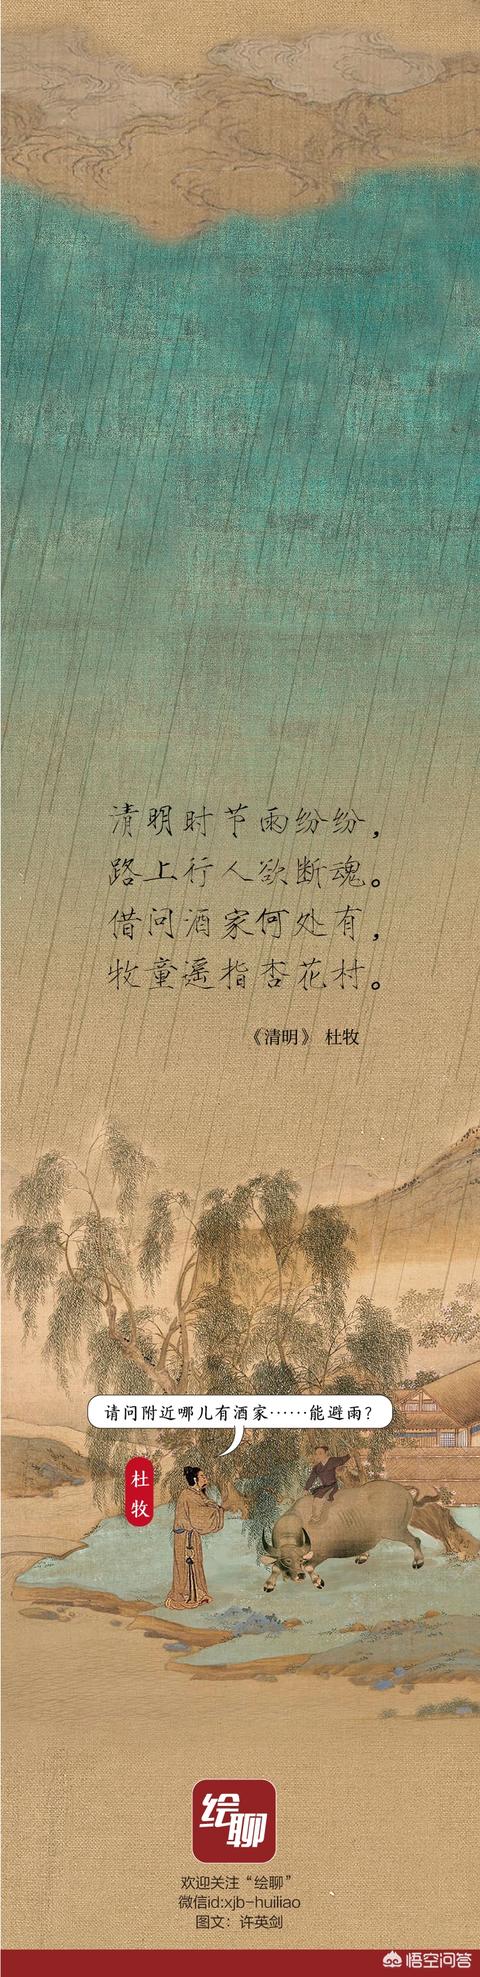 清明时节雨纷纷，
路上行人欲断魂。
借问酒家何处有，
牧童遥指杏花村。
《清明》 杜牧
请问附近哪儿有酒家……能避雨？
杜牧
绘聊
欢迎关注“绘聊”
微信id:xjb-huiliao
图文：许英剑
悟空问答